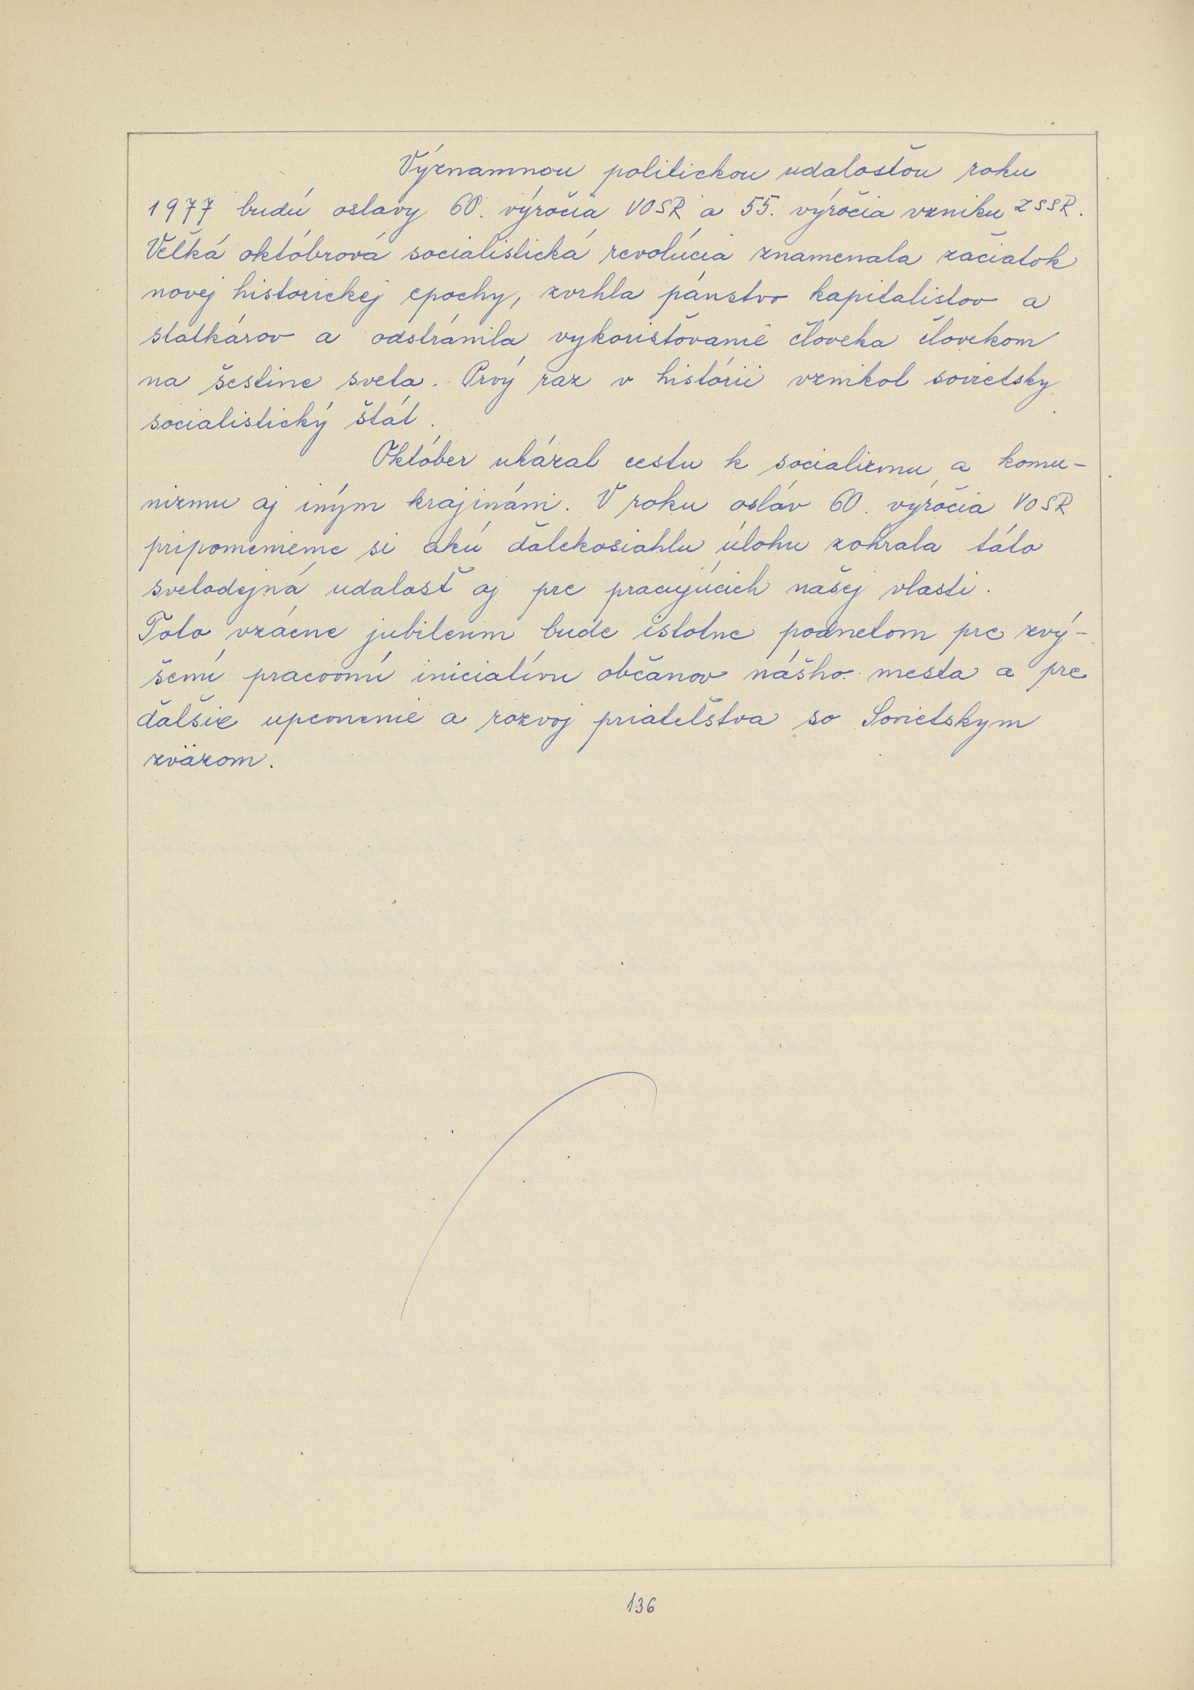 Významnou politickou udalosťou roku
1977 budú oslavy 60. výročia VOSR a 55. výročia vzniku ZSSR.
Veľká októbrová socialistická revolúcia znamenala začiatok
novej historickej epochy, zvrhla pánstvo kapitalistov a
statkárov a odstránila vykorisťovanie človeka človekom
na šestine sveta. Prvý raz v histórii vznikol sovietsky
socialistický štát.
Október ukázal cestu k socializmu a komu-
nizmu aj iným krajinám. V roku osláv 60. výročia VOSR
pripomenieme si akú ďalekosiahlu úlohu zohrala táto
svetodejná udalosť aj pre pracujúcich našej vlasti.
Toto vzácne jubileum bude istotne podnetom pre zvý-
šenú pracovnú iniciatívu občanov nášho mesta a pre
ďalšie upevnenie a rozvoj priateľstva so Sovietskym
zväzom.
136